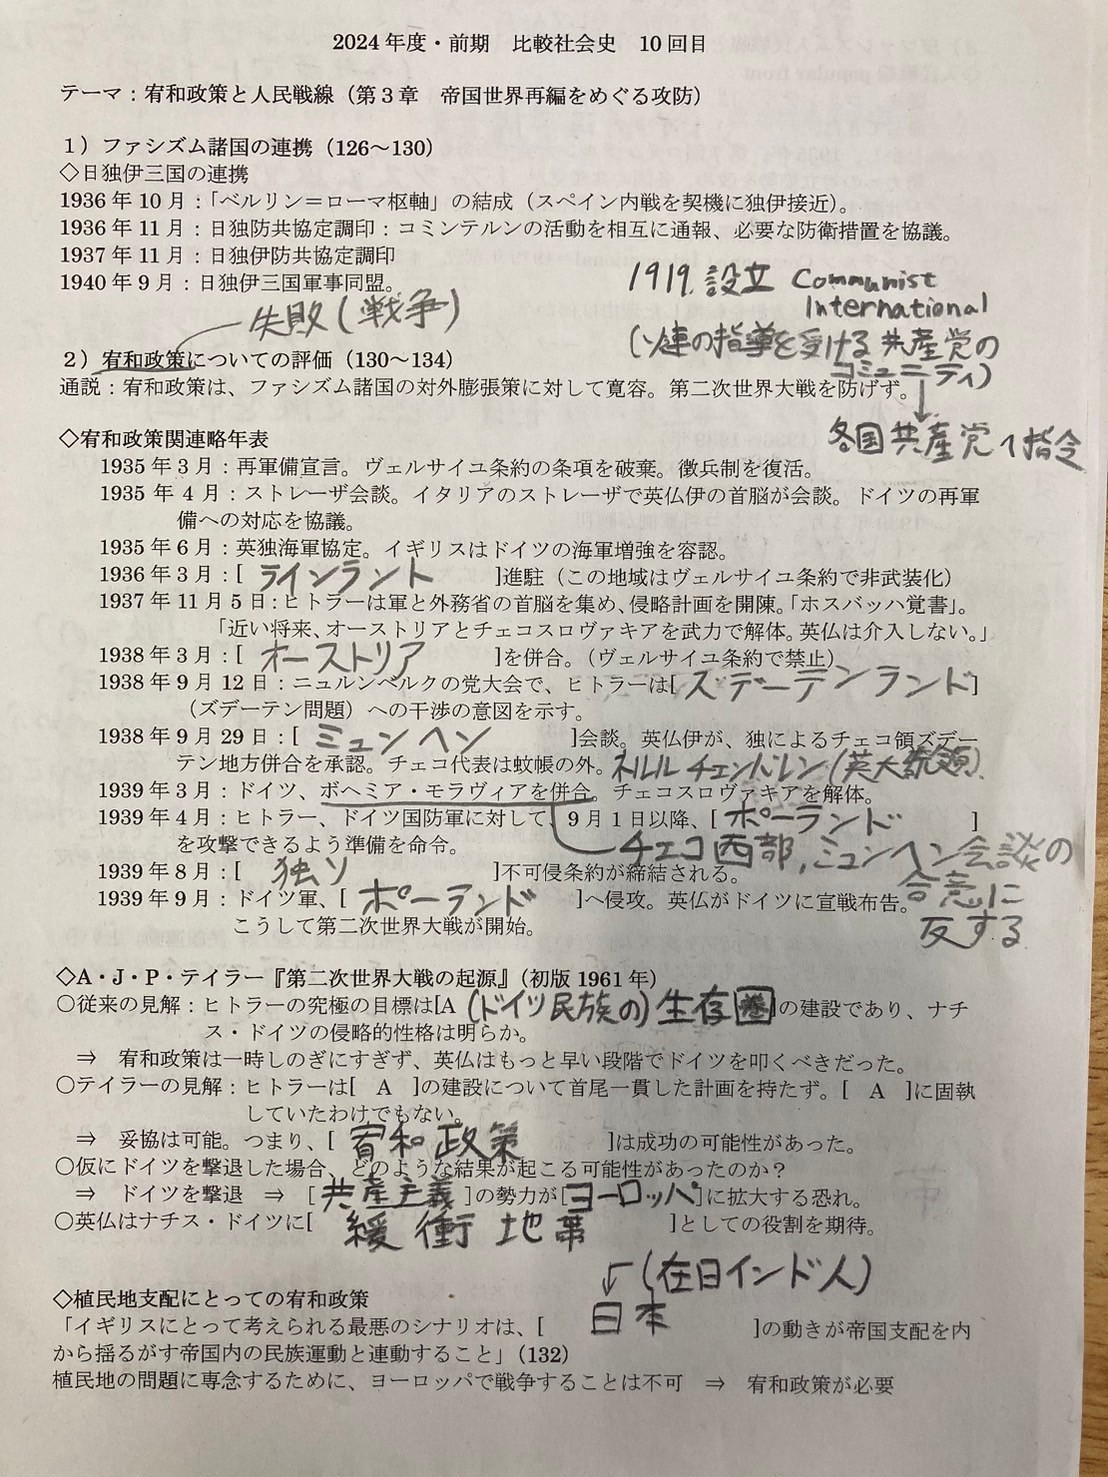 2024年度・前期　比較社会史　10回目
テーマ：宥和政策と人民戦線（第３章　帝国世界再編をめぐる攻防）
１）ファシズム諸国の連携（126～130）
◇日独伊三国の連携
1936年10月：「ベルリン＝ローマ枢軸」の結成（スペイン内戦を契機に独伊接近）。
1936年11月：日独防共協定調印：コミンテルンの活動を相互に通報、必要な防衛措置を協議。
1937年11月：日独伊防共協定調印
1940年9月：日独伊三国軍事同盟。
1919.設立 Communist
International
(ソ連の指導を受ける共産党の
コミュニティ)
↓
各国共産党へ指令
失敗(戦争)
２）宥和政策についての評価（130～134）
通説：宥和政策は、ファシズム諸国の対外膨張策に対して寛容。第二次世界大戦を防げず。
◇宥和政策関連略年表
1935年3月：再軍備宣言。ヴェルサイユ条約の条項を破棄。徴兵制を復活。
1935年 4月：ストレーザ会談。イタリアのストレーザで英仏伊の首脳が会談。ドイツの再軍
備への対応を協議。
1935年6月：英独海軍協定。イギリスはドイツの海軍増強を容認。
1936年3月：[ ラインラント ]進駐（この地域はヴェルサイユ条約で非武装化）
1937年11月5日：ヒトラーは軍と外務省の首脳を集め、侵略計画を開陳。「ホスバッハ覚書」。
「近い将来、オーストリアとチェコスロヴァキアを武力で解体。英仏は介入しない。」
1938年3月：[ オーストリア ]を併合。（ヴェルサイユ条約で禁止）
1938年9月12日：ニュルンベルクの党大会で、ヒトラーは[ ズデーテンランド ]
（ズデーテン問題）への干渉の意図を示す。
1938年9月29日：[ ミュンヘン ]会談。英仏伊が、独によるチェコ領ズデー
テン地方併合を承認。チェコ代表は蚊帳の外。ネルル チェンバレン(英大統領)
1939年3月：ドイツ、ボヘミア・モラヴィアを併合。チェコスロヴァキアを解体。
1939年4月：ヒトラー、ドイツ国防軍に対して、9月1日以降、[ ポーランド ]
を攻撃できるよう準備を命令。
チェコ西部,ミュンヘン会談の
合意に
反する
1939年8月：[ 独ソ ]不可侵条約が締結される。
1939年9月：ドイツ軍、[ ポーランド ]へ侵攻。英仏がドイツに宣戦布告。
こうして第二次世界大戦が開始。
◇A・J・P・テイラー『第二次世界大戦の起源』（初版1961年）
○従来の見解：ヒトラーの究極の目標は[A (ドイツ民族の)生存圏]の建設であり、ナチ
ス・ドイツの侵略的性格は明らか。
⇒　宥和政策は一時しのぎにすぎず、英仏はもっと早い段階でドイツを叩くべきだった。
○テイラーの見解：ヒトラーは[　A　]の建設について首尾一貫した計画を持たず。[　A　]に固執
していたわけでもない。
⇒　妥協は可能。つまり、[ 宥和政策 ]は成功の可能性があった。
○仮にドイツを撃退した場合、どのような結果が起こる可能性があったのか？
⇒　ドイツを撃退　⇒　[ 共産主義 ]の勢力が[ヨーロッパ]に拡大する恐れ。
○英仏はナチス・ドイツに[ 緩衝地帯 ]としての役割を期待。
↙(在日インド人)
◇植民地支配にとっての宥和政策
「イギリスにとって考えられる最悪のシナリオは、[ 日本 ]の動きが帝国支配を内
から揺るがす帝国内の民族運動と連動すること」（132）
植民地の問題に専念するために、ヨーロッパで戦争することは不可　⇒　宥和政策が必要